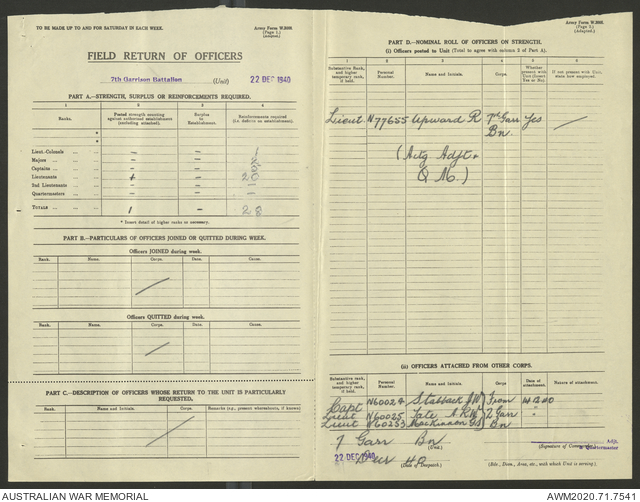 TO BE MADE UP TO AND FOR SATURDAY IN EACH WEEK.
Army Form W.3008.
(Page 1.)
(Adapted.)
FIELD RETURN OF OFFICERS
7th Garrison Battalion (Unit) 22 DEC 1940
PART A.—STRENGTH, SURPLUS OR REINFORCEMENTS REQUIRED.
1 2 3 4
Ranks.
Posted strength counting against authorised establishment (excluding attached).
Surplus to Establishment.
Reinforcements required (i.e. deficit on establishment).
*
*
Lieut.-Colonels ... ... — — 1
Majors ... ... — —
Captains ... ... — —
Lieutenants ... ... 1 — 20
2nd Lieutenants ... ... — — —
Quartermasters ... ... — — —
TOTALS ... ... 1 — 28
* Insert detail of higher ranks as necessary.
PART B.—PARTICULARS OF OFFICERS JOINED OR QUITTED DURING WEEK.
Officers JOINED during week.
Rank. Name. Corps. Date. Cause.
Officers QUITTED during week.
Rank. Name. Corps. Date. Cause.
PART C.—DESCRIPTION OF OFFICERS WHOSE RETURN TO THE UNIT IS PARTICULARLY REQUESTED.
Rank. Name and Initials. Corps. Remarks (e.g., present whereabouts, if known)
Army Form W.3008.
(Page 2.)
(Adapted.)
PART D.—NOMINAL ROLL OF OFFICERS ON STRENGTH.
(i) Officers posted to Unit (Total to agree with column 2 of Part A).
1 2 3 4 5 6
Substantive Rank, and higher temporary rank, if held.
Personal Number.
Name and Initials.
Corps.
Whether present with Unit (Insert Yes or No).
If not present with Unit, state how employed.
Lieut N77655 Upward R 7th Garr Yes
Bn.
(Actg Adjt &
Q M.)
(ii) OFFICERS ATTACHED FROM OTHER CORPS.
Substantive rank, and higher temporary rank, if held.
Personal Number.
Name and Initials.
Corps.
Date of attachment.
Nature of attachment.
Capt N60024 From
Lieut N60025 Tate 2 Garr "
Lieut N60253 MacKinnon Bn
7 Garr Bn
(Signature of Commander)
Adjt.
& Quartermaster
22 DEC 1940
(Date of Despatch).
(Bde., Divn., Area, etc., with which Unit is serving)
AUSTRALIAN WAR MEMORIAL
AWM2020.71.7541